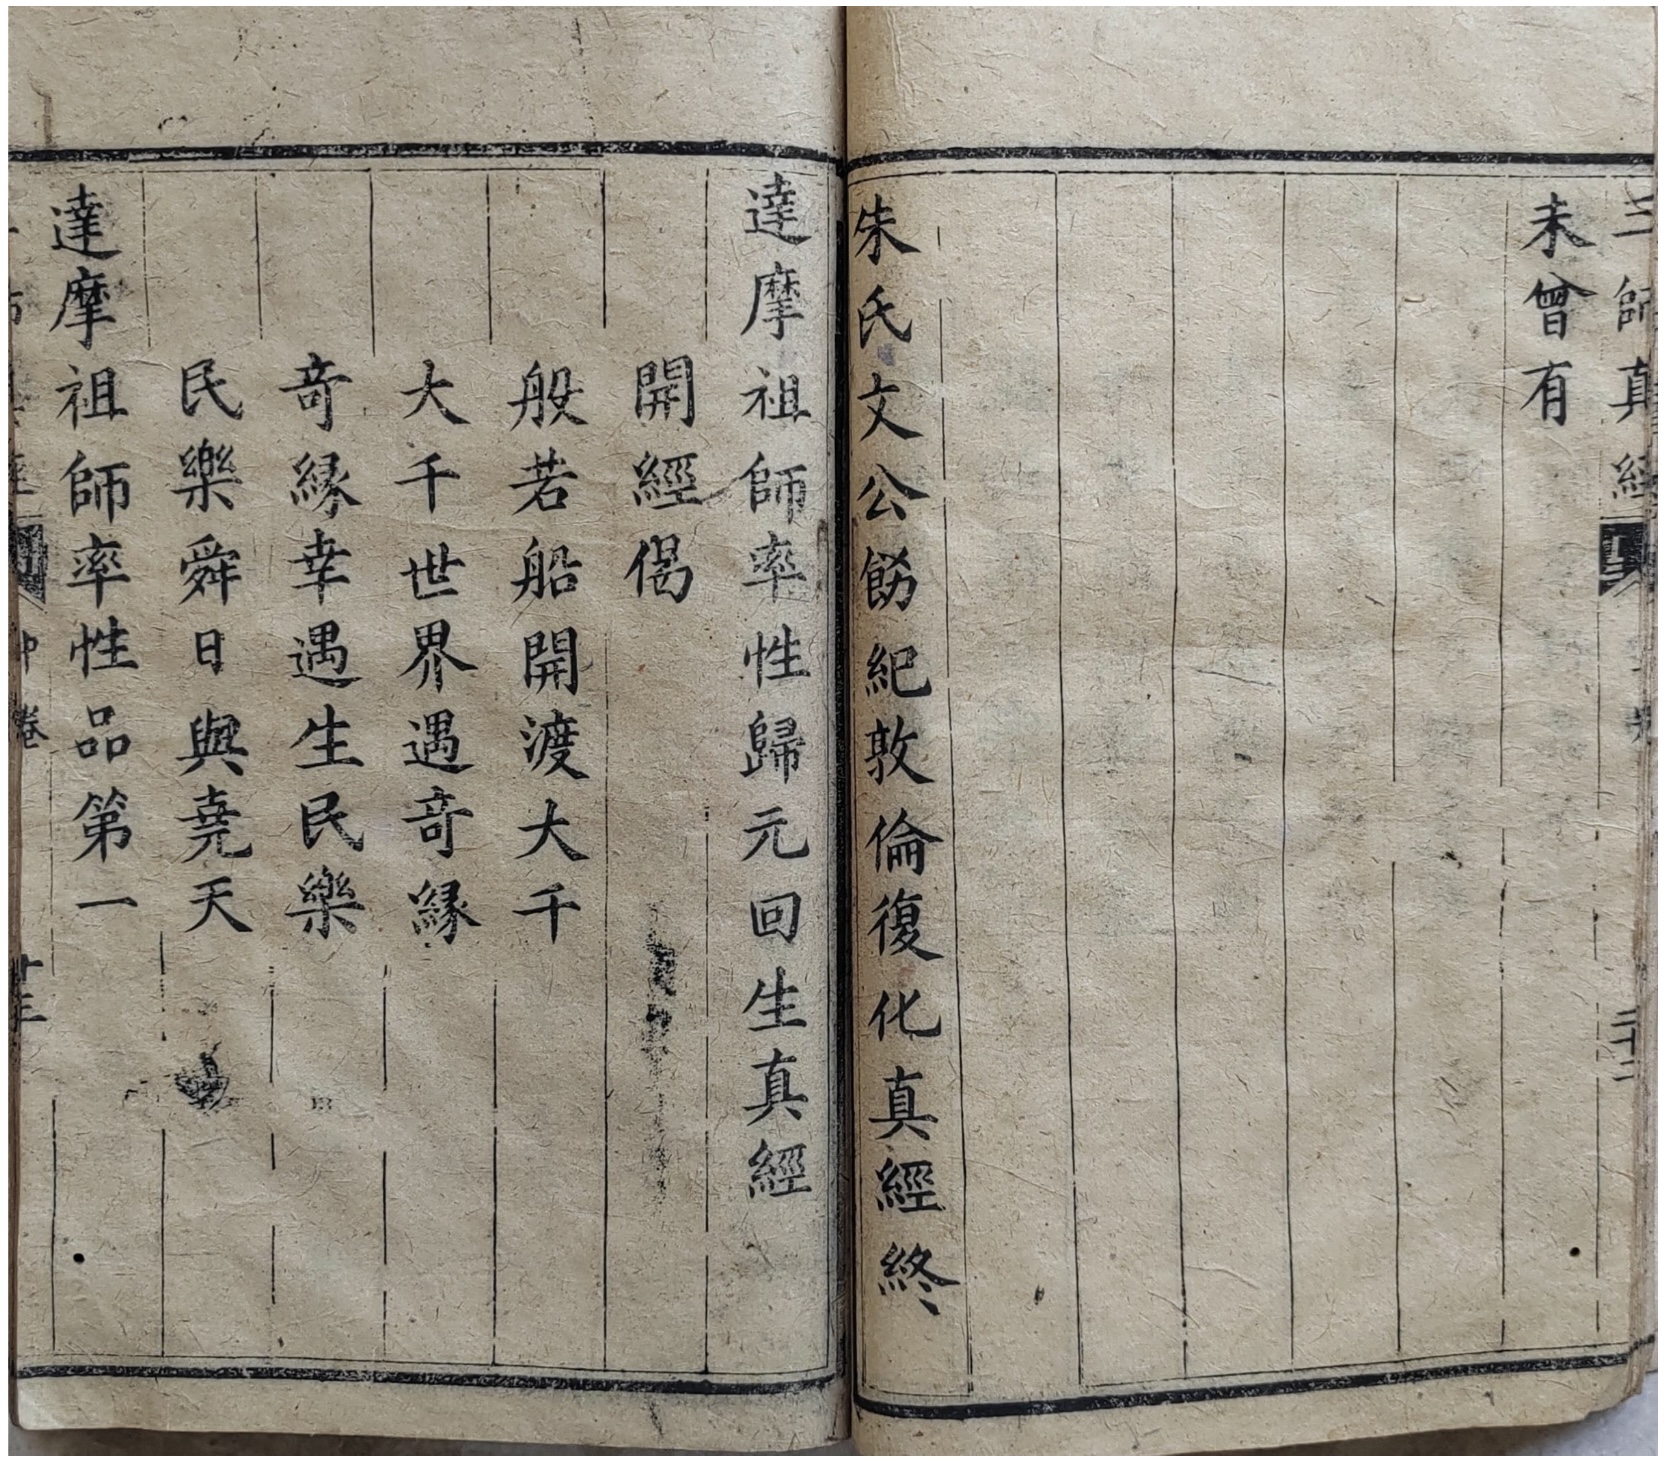 三師真經
二十二
未曾有
朱氏文公飭紀敦倫復化真經終
達摩祖師率性歸元回生真經
開經偈
般若船開渡大千
大千世界遇竒緣
竒緣幸遇生民樂
民樂舜日與堯天
達摩祖師率性品第一
卷